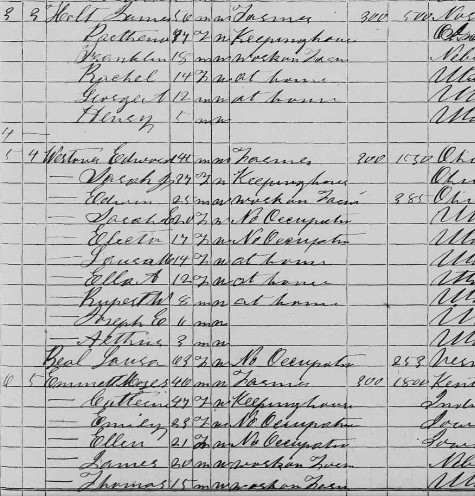 3 3 Holt James 56 m w Farmer 300 500
— Parthena 47 F w Keeping house
— Franklin 18 m w work on Farm Neb
— Rachel 14 F w at home Uta
— George A 12 m w at home Uta
— Henry 5 m w Uta
4 —
5 4 Westover Edward 44 m w Farmer 200 1530 Ohi
— Sarah J 37 F w Keeping house Ohi
— Edwin 25 m w work on Farm 385 Ohi
— Sarah E 20 F w No Occupation
— Electa 17 F w No Occupation Uta
— Louisa 14 F w at home Uta
— Ella A 12 F w at home Uta
— Rupert W 8 m w at home Uta
— Joseph E 6 m w Uta
— Arthur 3 m w Uta
Beal Louisa 63 F w No Occupation 253
6 5 Emmett Moses 46 m w Farmer 300 1500 Kent
— 47 F w Keeping house Indi
— Emily 23 F w No Occupation Iowa
— Ellen 21 F w No Occupation Iowa
— James 20 m w work on Farm Neb
— Thomas 15 m w work on Farm Uta